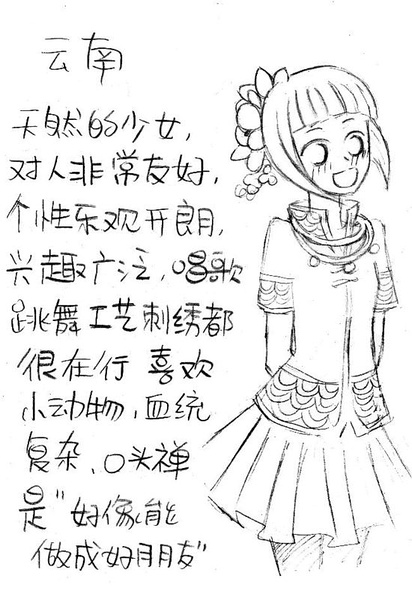 云南
天然的少女，
对人非常友好，
个性乐观开朗，
兴趣广泛，唱歌
跳舞工艺刺绣都
很在行 喜欢
小动物，血统
复杂、口头禅
是"好像能
做成好朋友"